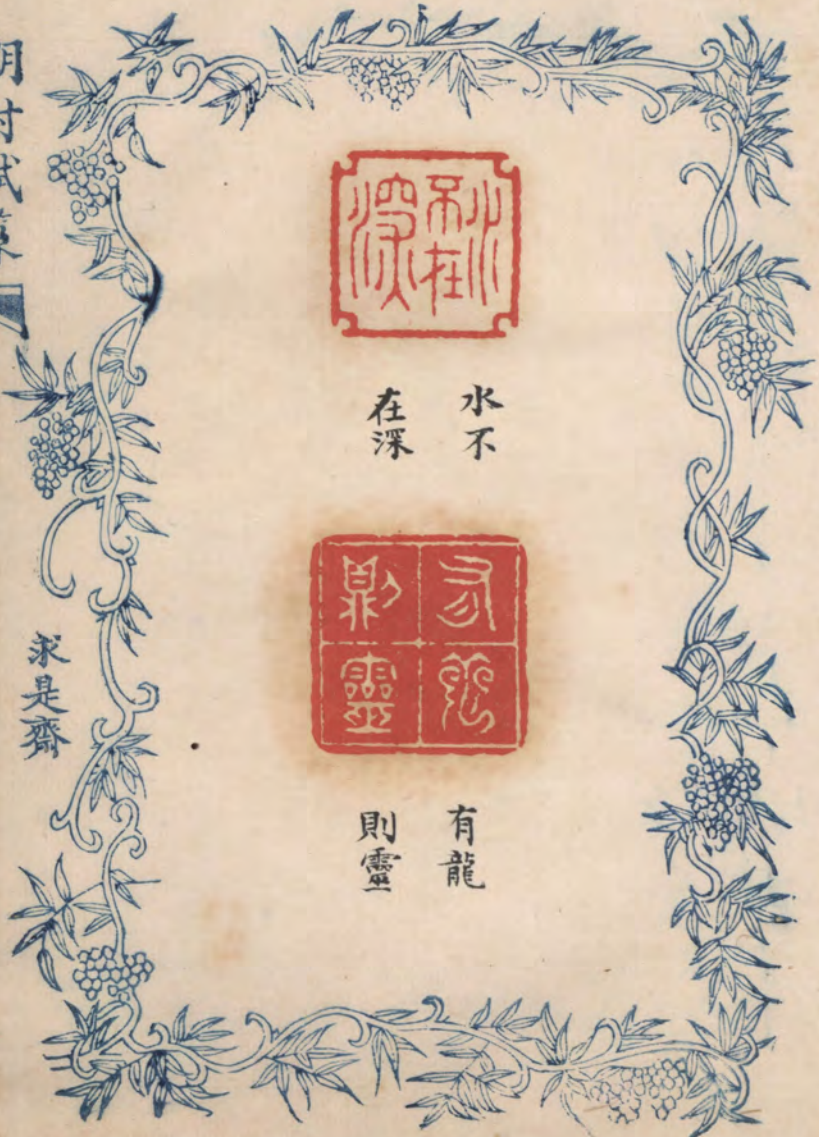 水不
在深
水不在深
有龍
則靈
有龍則靈
求是齋